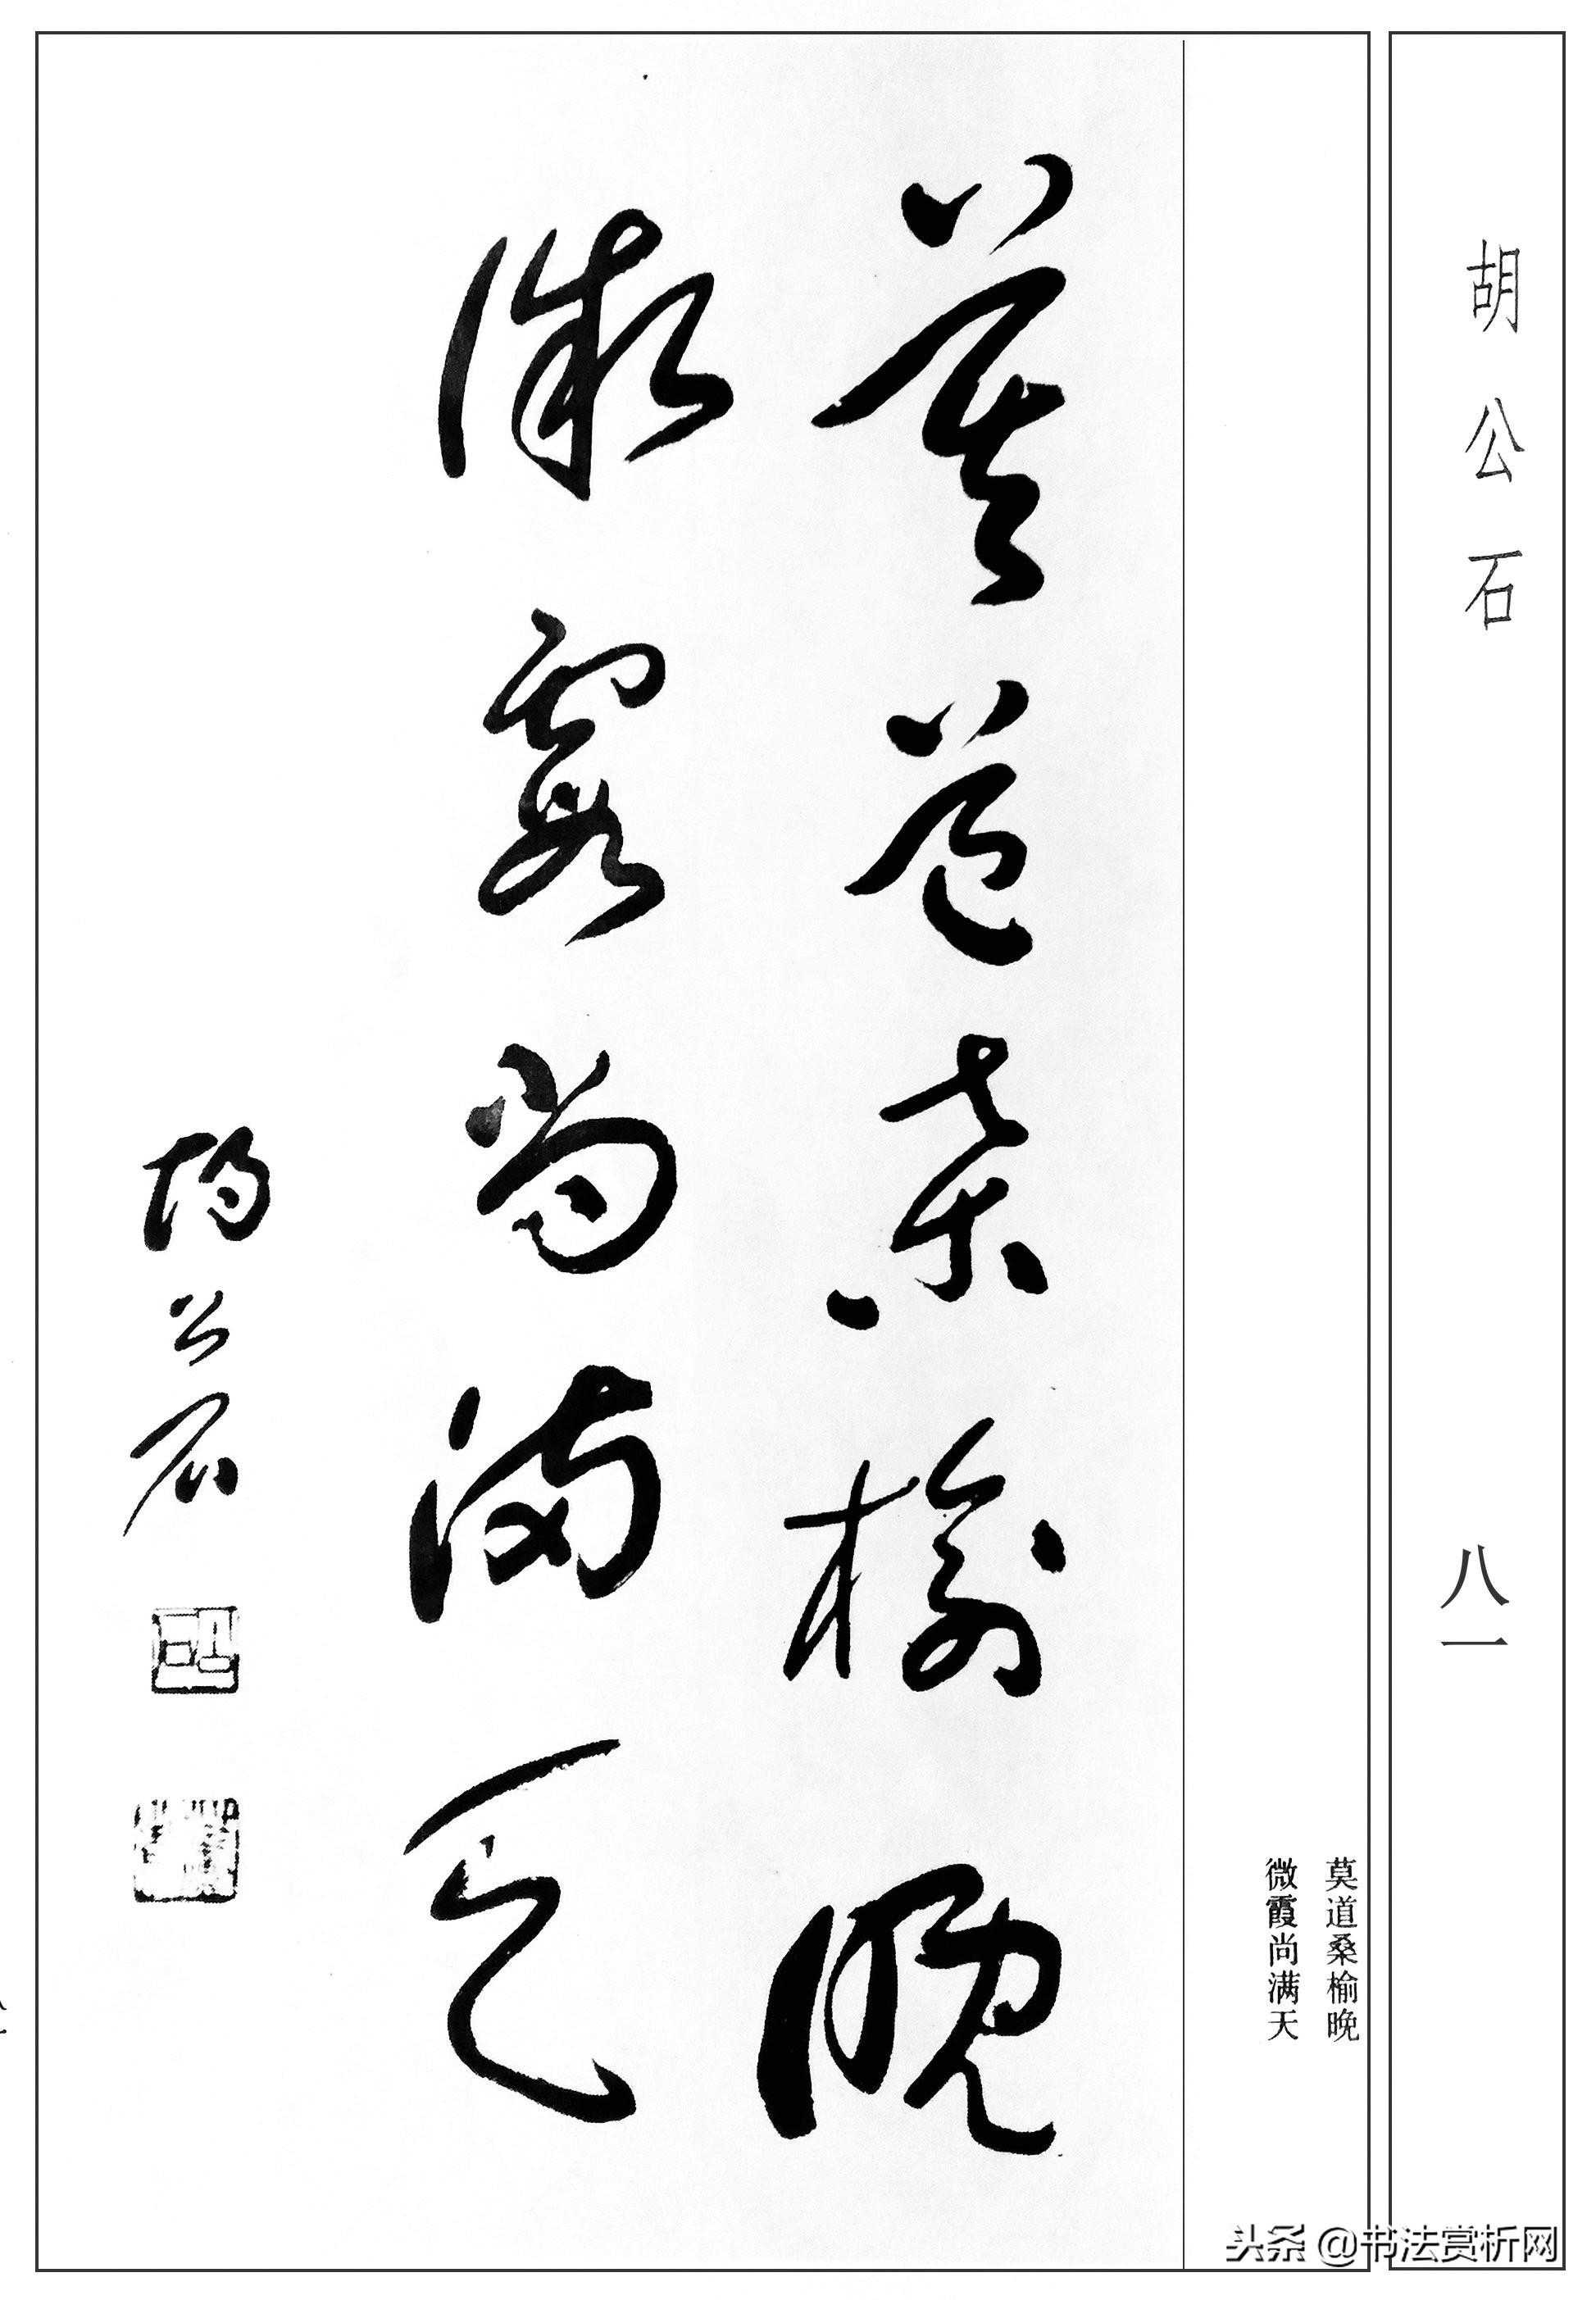 胡公石
八一
莫道桑榆晚
微霞尚满天
莫道桑榆晚
微霞尚满天
胡公石
头条 @书法赏析网